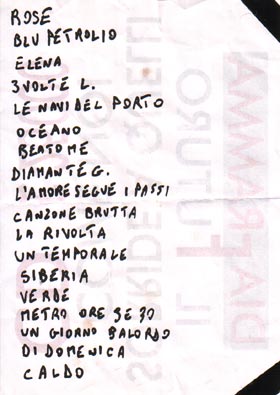 ROSE
BLU PETROLIO
ELENA
3 VOLTE L.
LE NAVI DEL PORTO
OCEANO
BEATO ME
DIAMANTE G.
L'AMORE SEGUE I PASSI
CANZONE BRUTTA
LA RIVOLTA
UN TEMPORALE
SIBERIA
VERDE
METRO ORE 3E30
UN GIORNO BALORDO
DI DOMENICA
CALDO